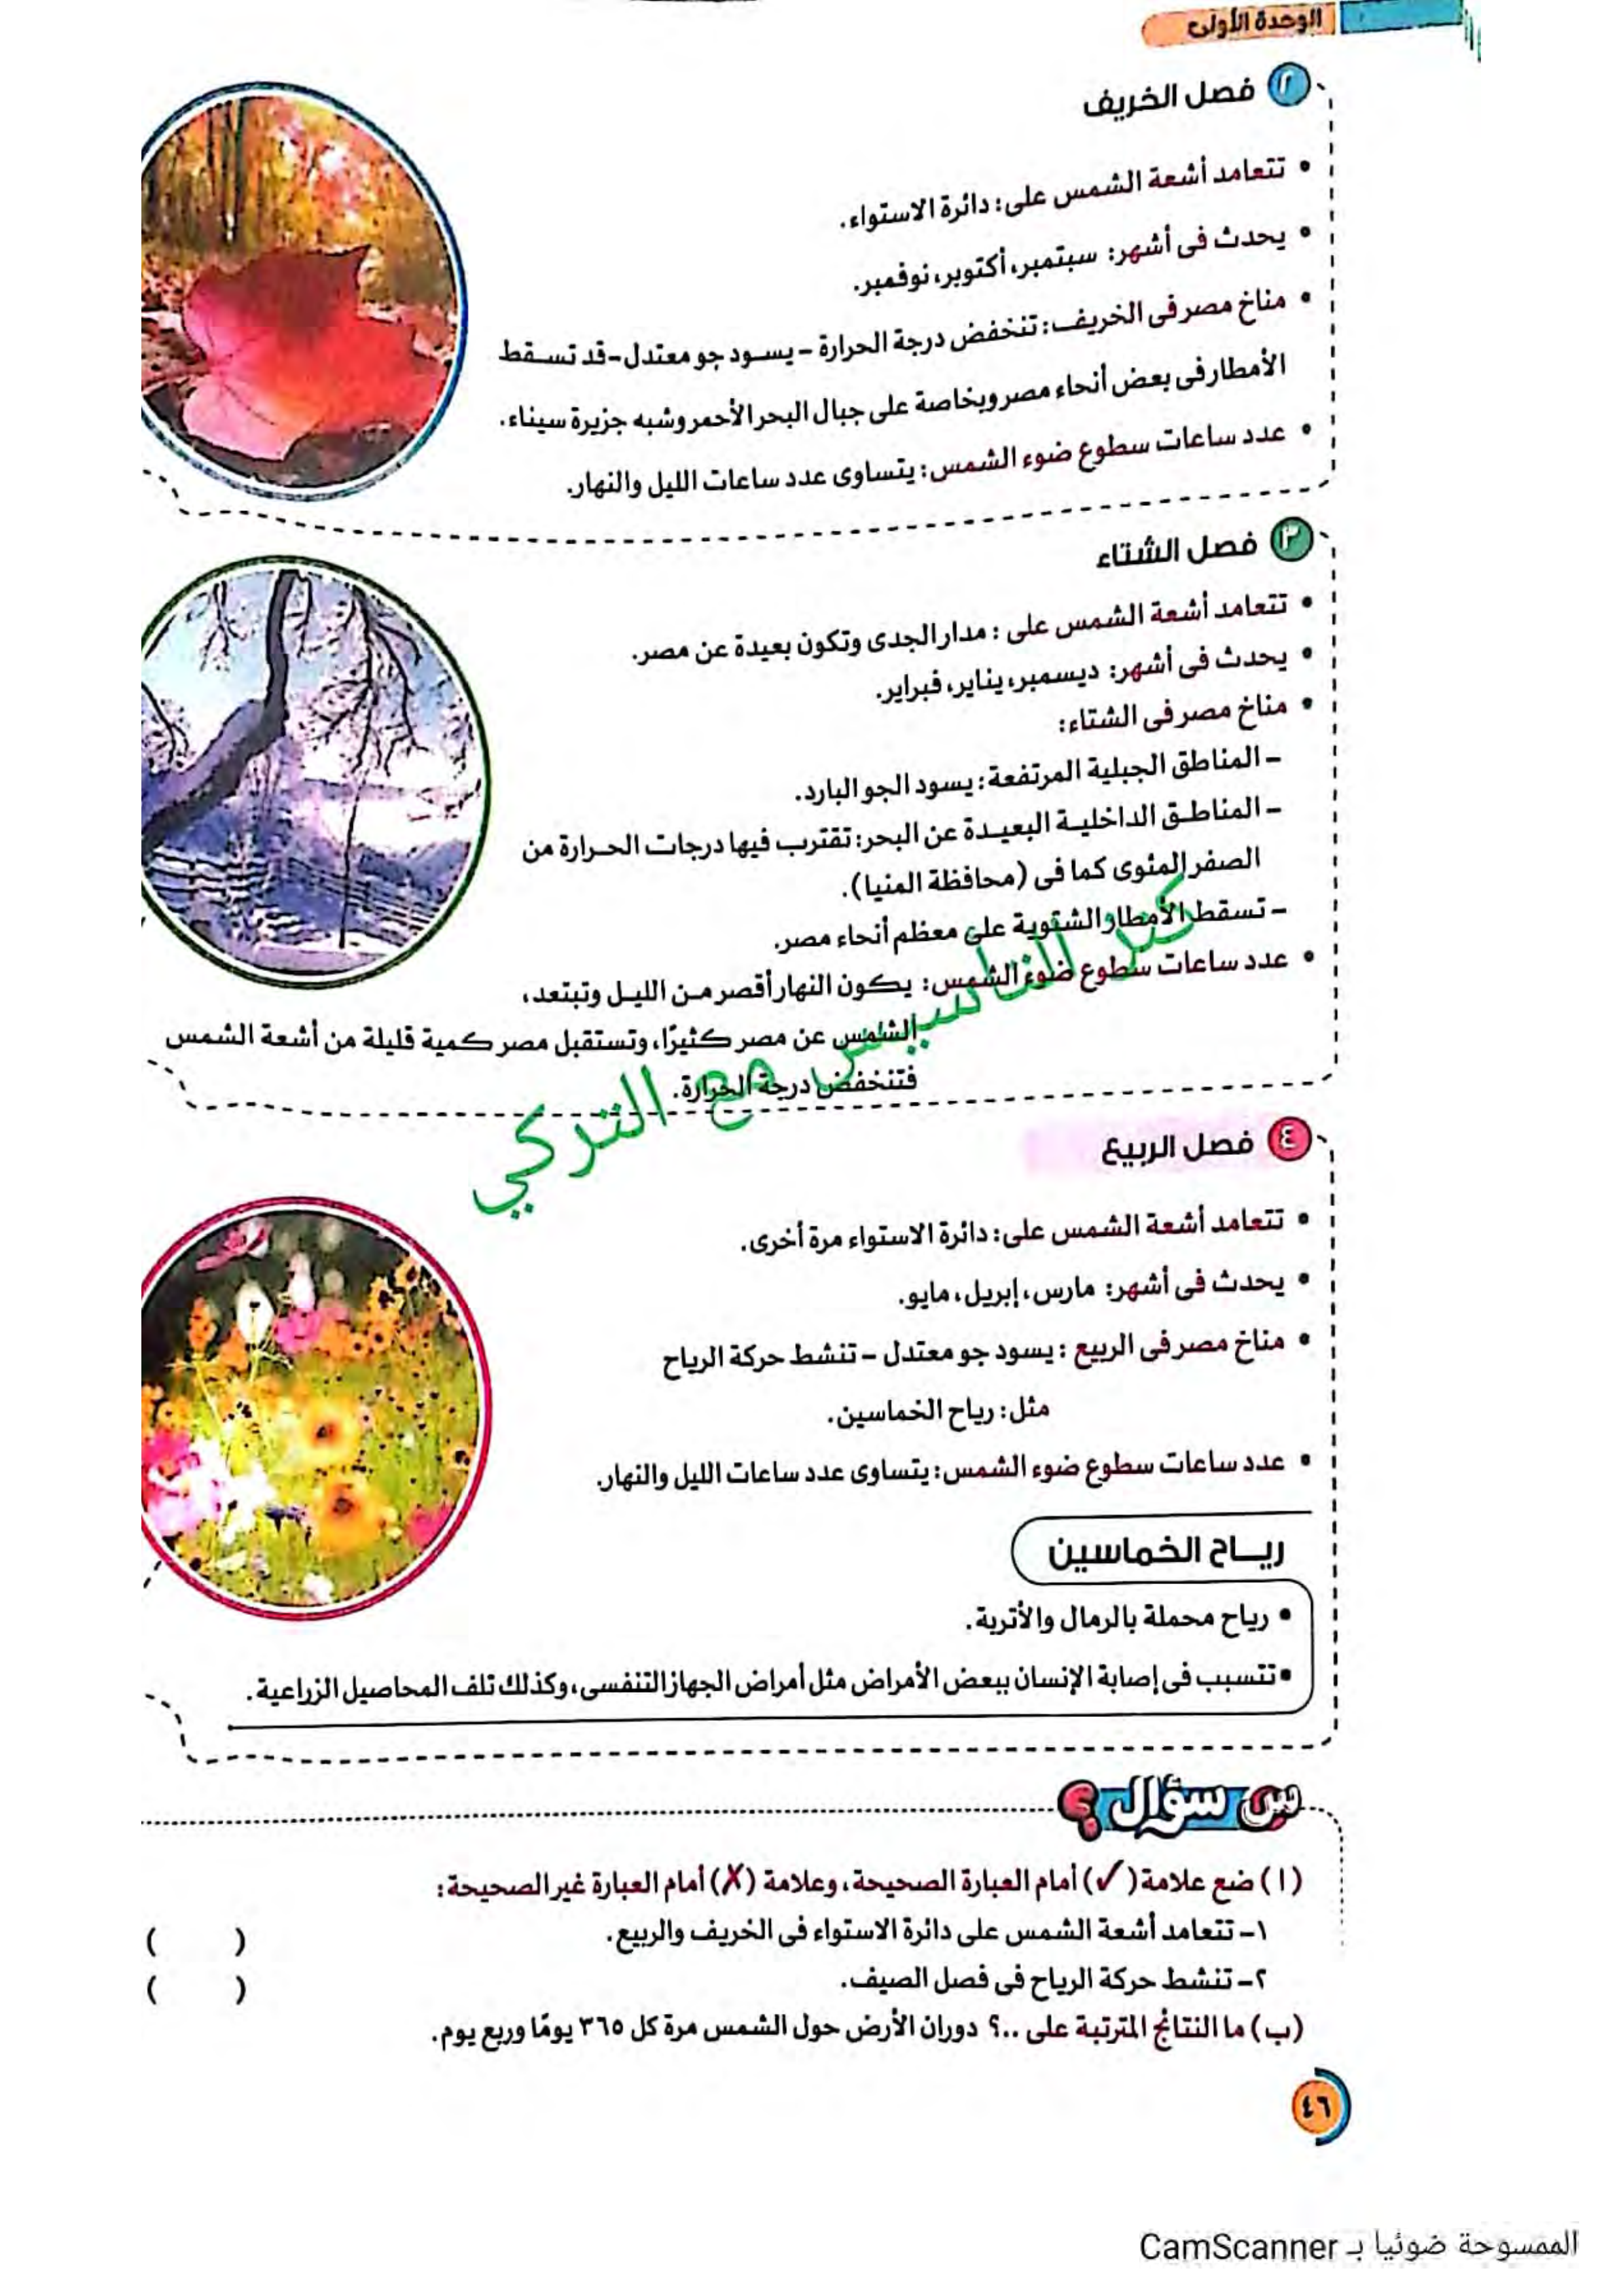 الوحدة الأولى
٢ فصل الخريف
• تتعامد أشعة الشمس على: دائرة الاستواء.
• يحدث فى أشهر: سبتمبر، أكتوبر، نوفمبر.
• مناخ مصر فى الخريف: تنخفض درجة الحرارة – يسود جو معتدل – قد تسقط
الأمطار فى بعض أنحاء مصر وبخاصة على جبال البحر الأحمر وشبه جزيرة سيناء.
• عدد ساعات سطوع ضوء الشمس: يتساوى عدد ساعات الليل والنهار.
٣ فصل الشتاء
• تتعامد أشعة الشمس على : مدار الجدى وتكون بعيدة عن مصر.
• يحدث فى أشهر: ديسمبر، يناير، فبراير.
• مناخ مصر فى الشتاء:
– المناطق الجبلية المرتفعة: يسود الجو البارد.
– المناطق الداخلية البعيدة عن البحر: تقترب فيها درجات الحرارة من
الصفر المئوى كما فى (محافظة المنيا).
– تسقط الأمطار الشتوية على معظم أنحاء مصر.
• عدد ساعات سطوع ضوء الشمس: يكون النهار أقصر من الليل وتبتعد،
الشمس عن مصر كثيرًا، وتستقبل مصر كمية قليلة من أشعة الشمس
فتنخفض درجة الحرارة.
مع التركي
٤ فصل الربيع
• تتعامد أشعة الشمس على: دائرة الاستواء مرة أخرى.
• يحدث فى أشهر: مارس، إبريل، مايو.
• مناخ مصر فى الربيع : يسود جو معتدل – تنشط حركة الرياح
مثل: رياح الخماسين.
• عدد ساعات سطوع ضوء الشمس: يتساوى عدد ساعات الليل والنهار.
ريـاح الخماسين
• رياح محملة بالرمال والأتربة.
• تتسبب فى إصابة الإنسان ببعض الأمراض مثل أمراض الجهاز التنفسى، وكذلك تلف المحاصيل الزراعية.
س سؤال ؟
(ا) ضع علامة (✓) أمام العبارة الصحيحة، وعلامة (✗) أمام العبارة غير الصحيحة:
١– تتعامد أشعة الشمس على دائرة الاستواء فى الخريف والربيع. ( )
٢– تنشط حركة الرياح فى فصل الصيف. ( )
(ب) ما النتائج المترتبة على ..؟ دوران الأرض حول الشمس مرة كل ٣٦٥ يومًا وربع يوم.
٤٦
الممسوحة ضوئيا بـ CamScanner